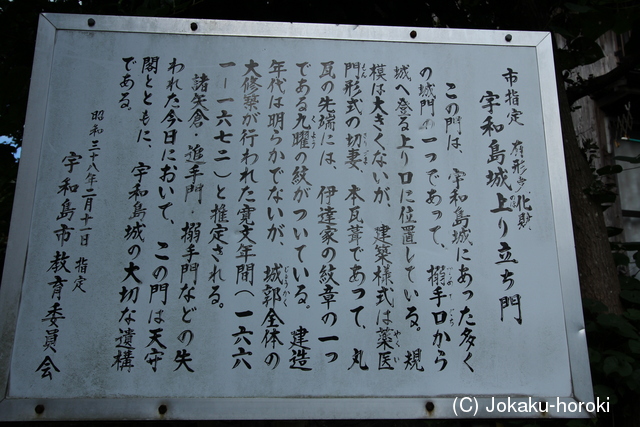 市指定 有形文化財
宇和島城上り立ち門
この門は、宇和島城にあった多く
の城門の一つであって、搦手口から
城へ登る上り口に位置している。規
模は大きくないが、建築様式は薬医
門形式の切妻、本瓦葺であって、丸
瓦の先端には、伊達家の紋章の一つ
である九曜の紋がついている。建造
年代は明らかでないが、城郭全体の
大修築が行われた寛文年間（一六六
一－一六七二）と推定される。
諸矢倉・追手門・搦手門などの失
われた今日において、この門は天守
閣とともに、宇和島城の大切な遺構
である。
昭和三十八年二月十一日 指定
宇和島市教育委員会
(C) Jokaku-horoki